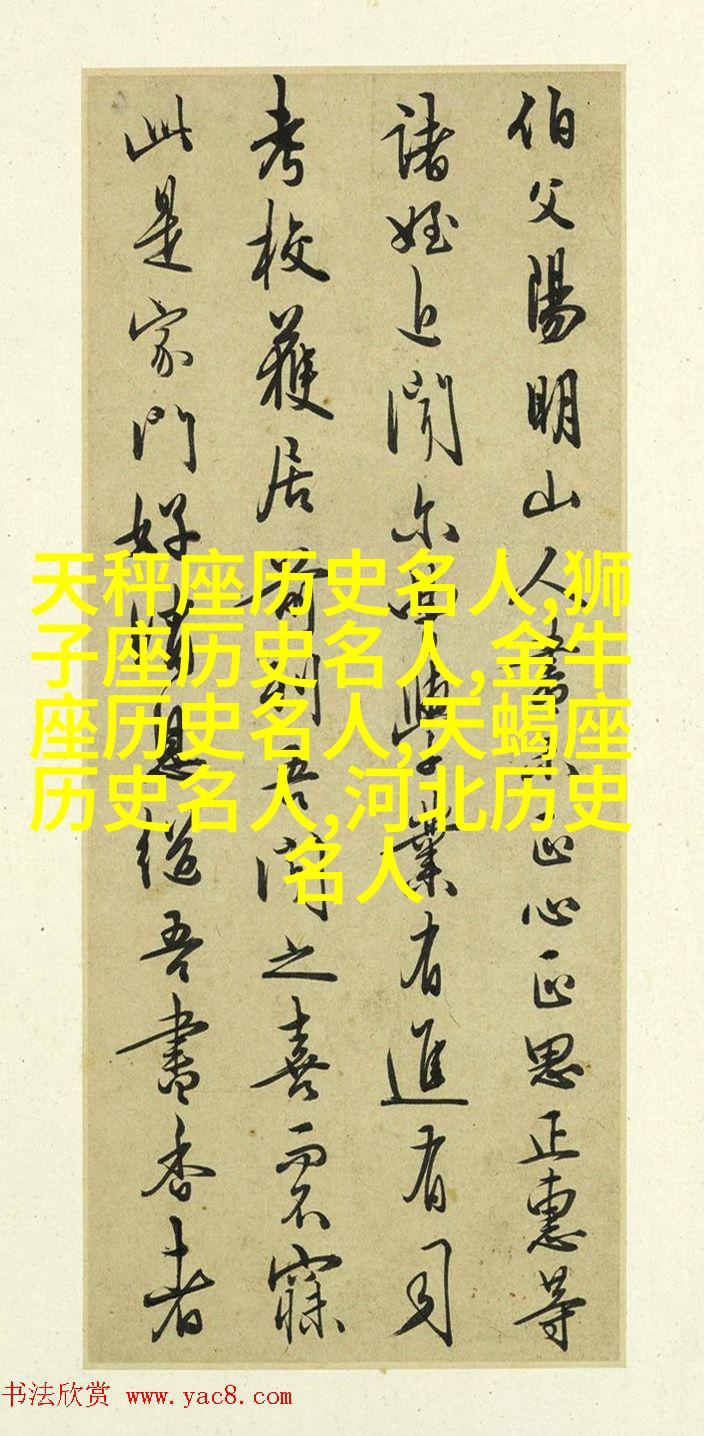 伯父陽明山人書示正心正思正惠等
諸姪近聞尔曹學業有進有司
考校獲居前列吾聞之喜而不寐
此是家門好消息繼吾書香者
天秤座历史名人,狮
子座历史名人,金牛
座历史名人,天蝎座
历史名人,河北历史
名人
书法欣赏 www.yac8.com